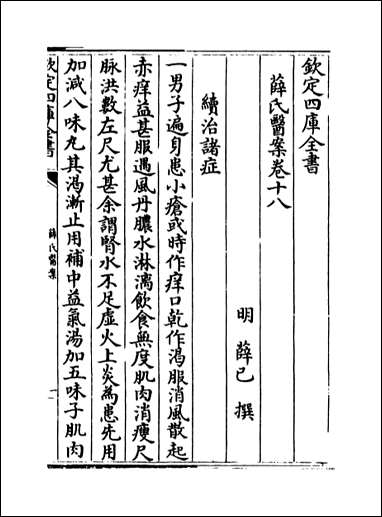 欽定四庫全書
薛氏醫案卷十八
明 薛己 撰
續治諸症
一男子遍身患小瘡或時作痒口乾作渴服消風散起
赤痒益甚服遇風丹膿水淋漓飲食無度肌肉消瘦尺
脉洪數左尺尤甚余謂腎水不足虛火上炎為患先用
加減八味丸其渴漸止用補中益氣湯加五味子肌肉
欽定四庫全書
薛氏醫案
一